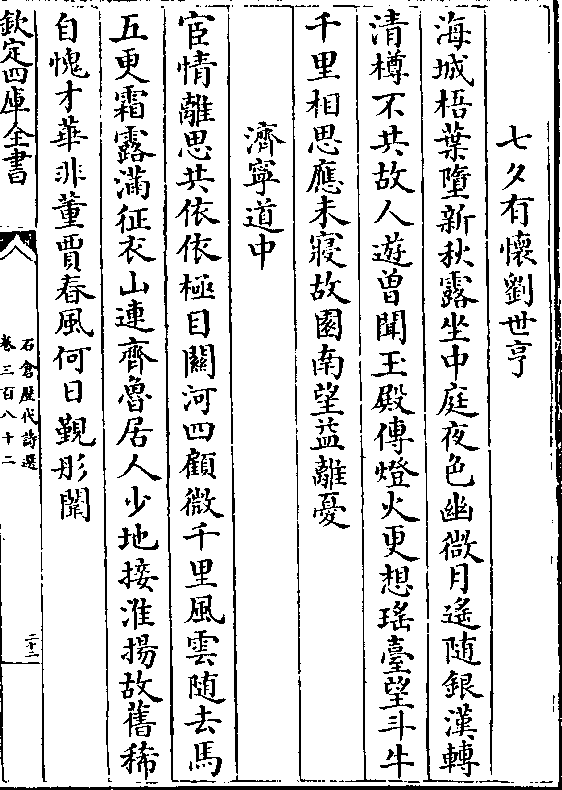 七夕有懷劉世亨
海城梧葉墮新秋露坐中庭夜色幽微月遙隨銀漢轉
清樽不共故人遊曽聞玉殿傳燈火更想瑤臺望斗牛
千里相思應未寢故園南望益離憂
濟寧道中
宦情離思共依依極目關河四顧微千里風雲隨去馬
五更霜露滿征衣山連齊魯居人少地接淮揚故舊稀
自愧才華非董賈春風何日覲彤闈
欽定四庫全書
石倉歴代詩選
卷三百八十二
二十二